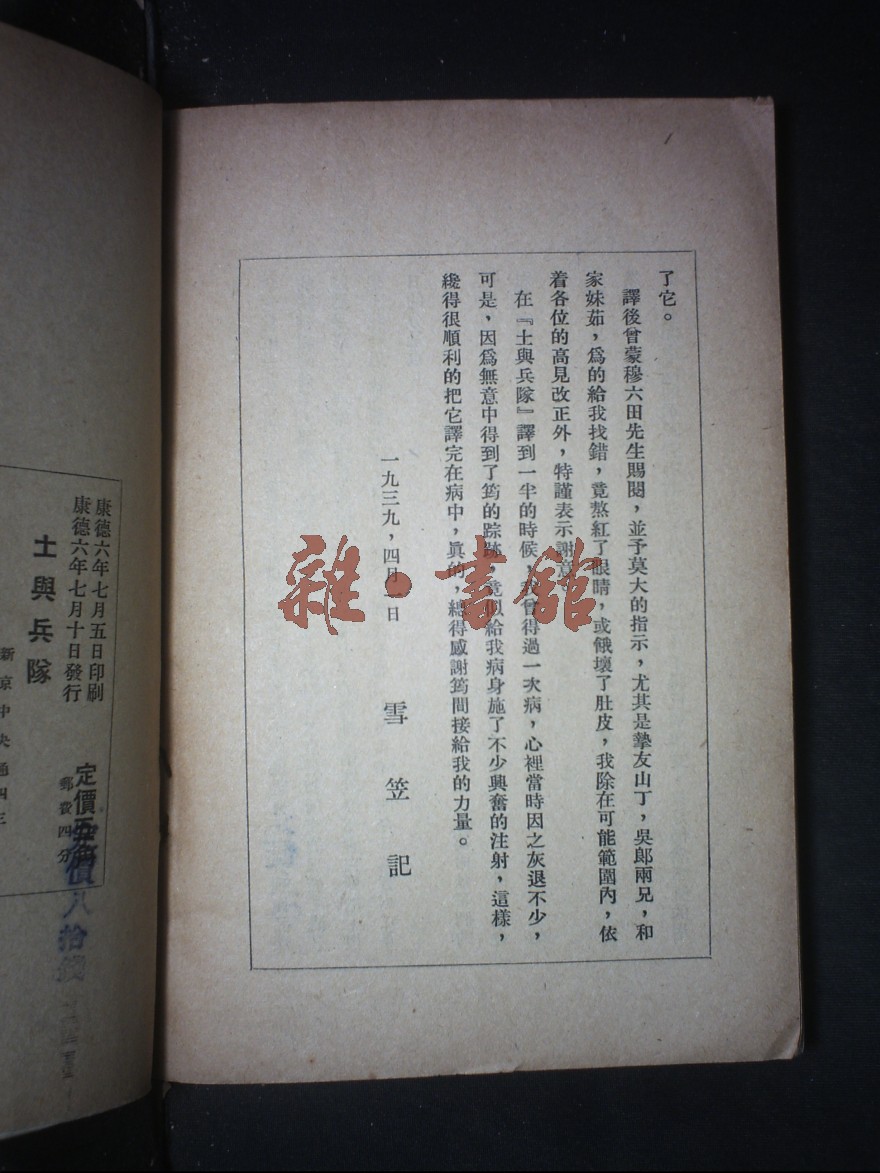 了它。
譯後曾蒙穆六田先生賜閱，並予莫大的指示，尤其是摯友山丁，吳郎兩兄，和
家妹茹，爲的給我找錯，竟熬紅了眼睛，或餓壞了肚皮，我除在可能範圍內，依
着各位的高見改正外，特謹表示謝意。
在『土與兵隊』譯到一半的時候，我曾得過一次病，心裡當時因之灰退不少，
可是，因爲無意中得到了筠的踪跡，竟似給我病身施了不少興奮的注射，這樣，
纔得很順利的把它譯完在病中，眞的，總得感謝筠間接給我的力量。
一九三九，四月一日 雪笠記
雜·書館
康德六年七月五日印刷
康德六年七月十日發行
土與兵隊
定價
郵費四分
價八拾錢
新京中央通四三